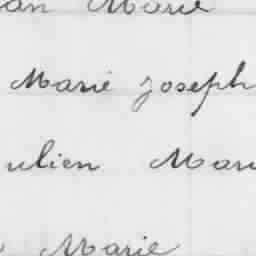 an Marie
Marie joseph
ulien Mari
Marie